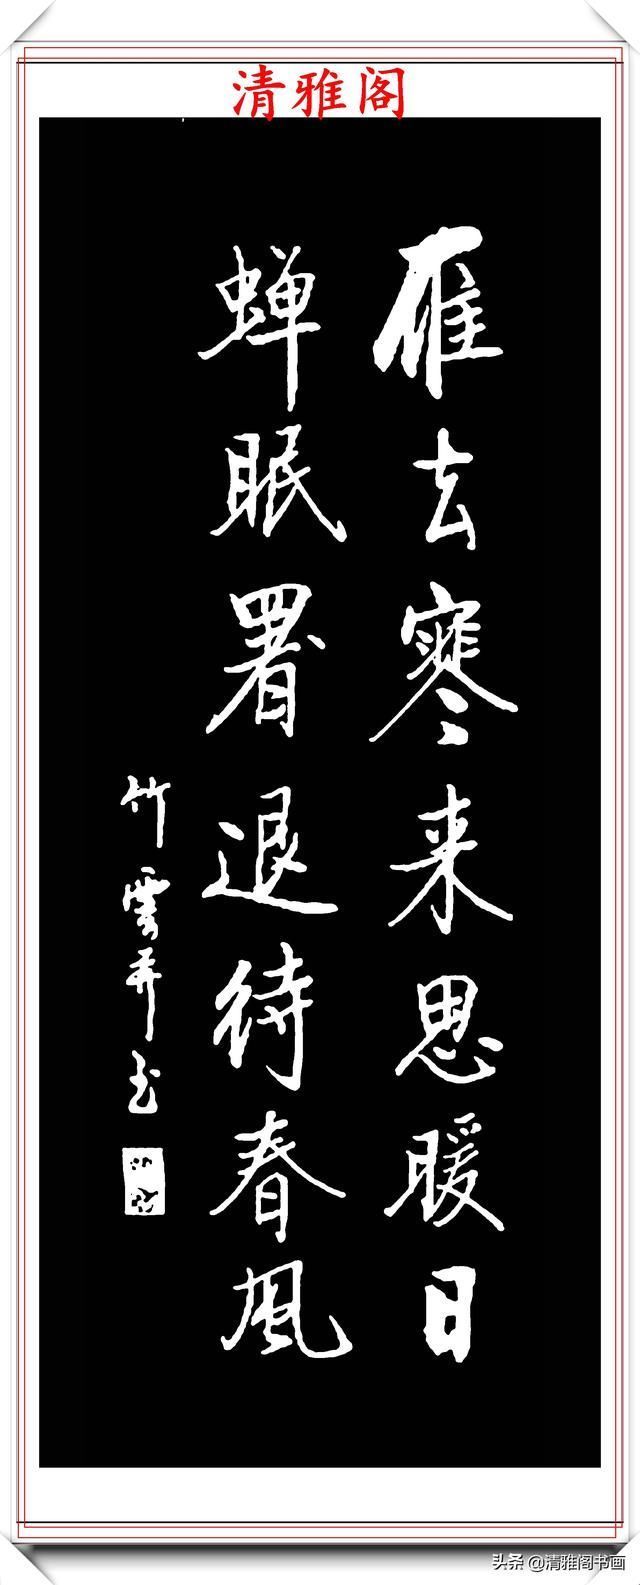 清雅阁
雁去寒来思暖日
蝉眠署退待春风
竹雲弄书
头条 @清雅阁书画